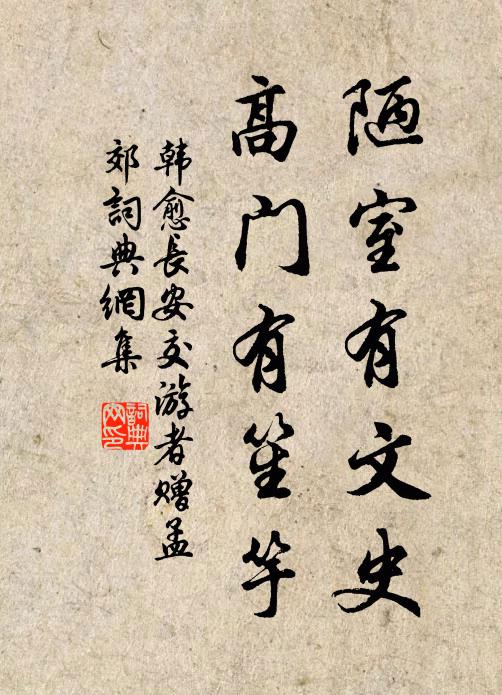 陋室有文史
高门有笙竽
韩愈長安交游者赠孟
郊詞典網集
詞典
网印